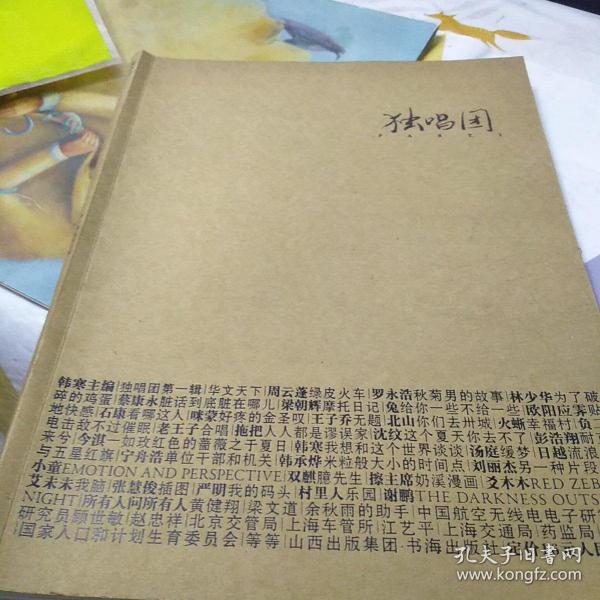 独唱团
PARTY
韩寒主编|独唱团第一辑|华文天下|周云蓬绿皮火车|罗永浩秋菊男的故事|林少华为了破
碎的鸡蛋|蔡康永脏话到底脏在哪儿|梁朝辉摩托日记|兔给你一些不给一些|欧阳应霁贴
地快感|石康看哪这人|咪蒙好疼的金圣叹|王子乔无题|北山你们去卅城|火蜥幸福村|负二
电击敌不过催眠|老王子合唱|拖把人人都是谬误家|沈纹这个夏天你去不了|彭浩翔耐
来兮|今淇一如玫红色的蔷薇之于夏日|韩寒我想和这个世界谈谈|汤庭缓梦|日越流浪
与五星红旗|宁舟浩单位干部和机关|韩承烨米粒般大小的时间点|刘丽杰另一种片段
小童EMOTION AND PERSPECTIVE|双麒臆先生|擦主席奶溪漫画|爻木木RED ZEB
艾未未我脑|张慧俊插图|严明我的码头|村里人乐园|谢鹏THE DARKNESS OUTS
NIGHT|所有人问所有人黄健翔|梁文道|余秋雨的助手|中国航空无线电电子研
研究员顾世敏|赵忠祥|北京交管局|上海车管所|江艺平|上海交通局|药监局
国家人口和计划生育委员会|等等|山西出版集团·书海出版社|定价
孔夫子旧书网
www.kongfz.com